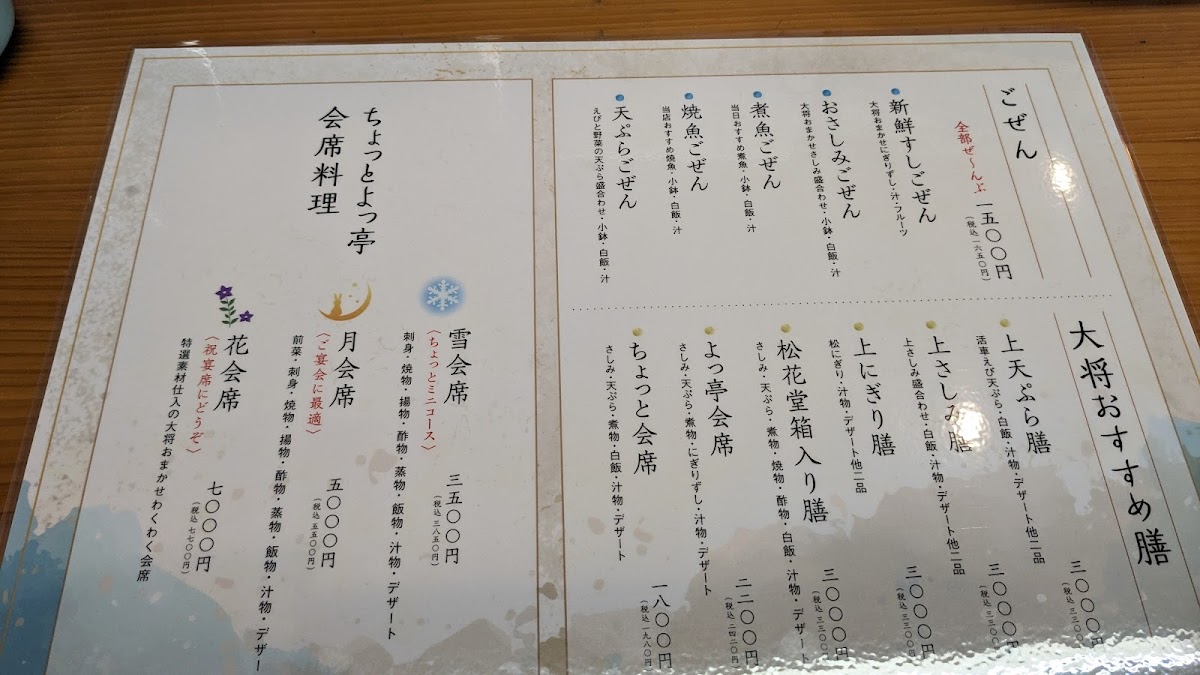 ごぜん
全部ぜ～んぶ 一五〇〇円
（税込 一六五〇円）
新鮮すしごぜん
大将おまかせにぎりずし・汁・フルーツ
おさしみごぜん
大将おまかせさしみ盛合わせ・小鉢・白飯・汁
煮魚ごぜん
当日おすすめ煮魚・小鉢・白飯・汁
焼魚ごぜん
当店おすすめ焼魚・小鉢・白飯・汁
天ぷらごぜん
えびと野菜の天ぷら盛合わせ・小鉢・白飯・汁
大将おすすめ膳
上天ぷら膳 三〇〇〇円
活車えび天ぷら・白飯・汁物・デザート他二品 （税込 三三〇〇円）
上さしみ膳 三〇〇〇円
上さしみ盛合わせ・白飯・汁物・デザート他二品 （税込 三三〇〇円）
上にぎり膳 三〇〇〇円
松にぎり・汁物・デザート他二品 （税込 三三〇〇円）
松花堂箱入り膳 三〇〇〇円
さしみ・天ぷら・煮物・焼物・酢物・白飯・汁物・デザート （税込 三三〇〇円）
よっ亭会席 二二〇〇円
さしみ・天ぷら・煮物・にぎりずし・汁物・デザート （税込 二四二〇円）
ちょっと会席 一八〇〇円
さしみ・天ぷら・煮物・白飯・汁物・デザート （税込 一九八〇円）
ちょっとよっ亭
会席料理
雪会席
〈ちょっとミニコース〉 三五〇〇円
（税込 三八五〇円）
刺身・焼物・揚物・酢物・蒸物・飯物・汁物・デザート
月会席
〈ご宴会に最適〉 五〇〇〇円
（税込 五五〇〇円）
前菜・刺身・焼物・揚物・酢物・蒸物・飯物・汁物・デザー
花会席
〈祝宴席にどうぞ〉 七〇〇〇円
（税込 七七〇〇円）
特選素材仕入の大将おまかせわくわく会席